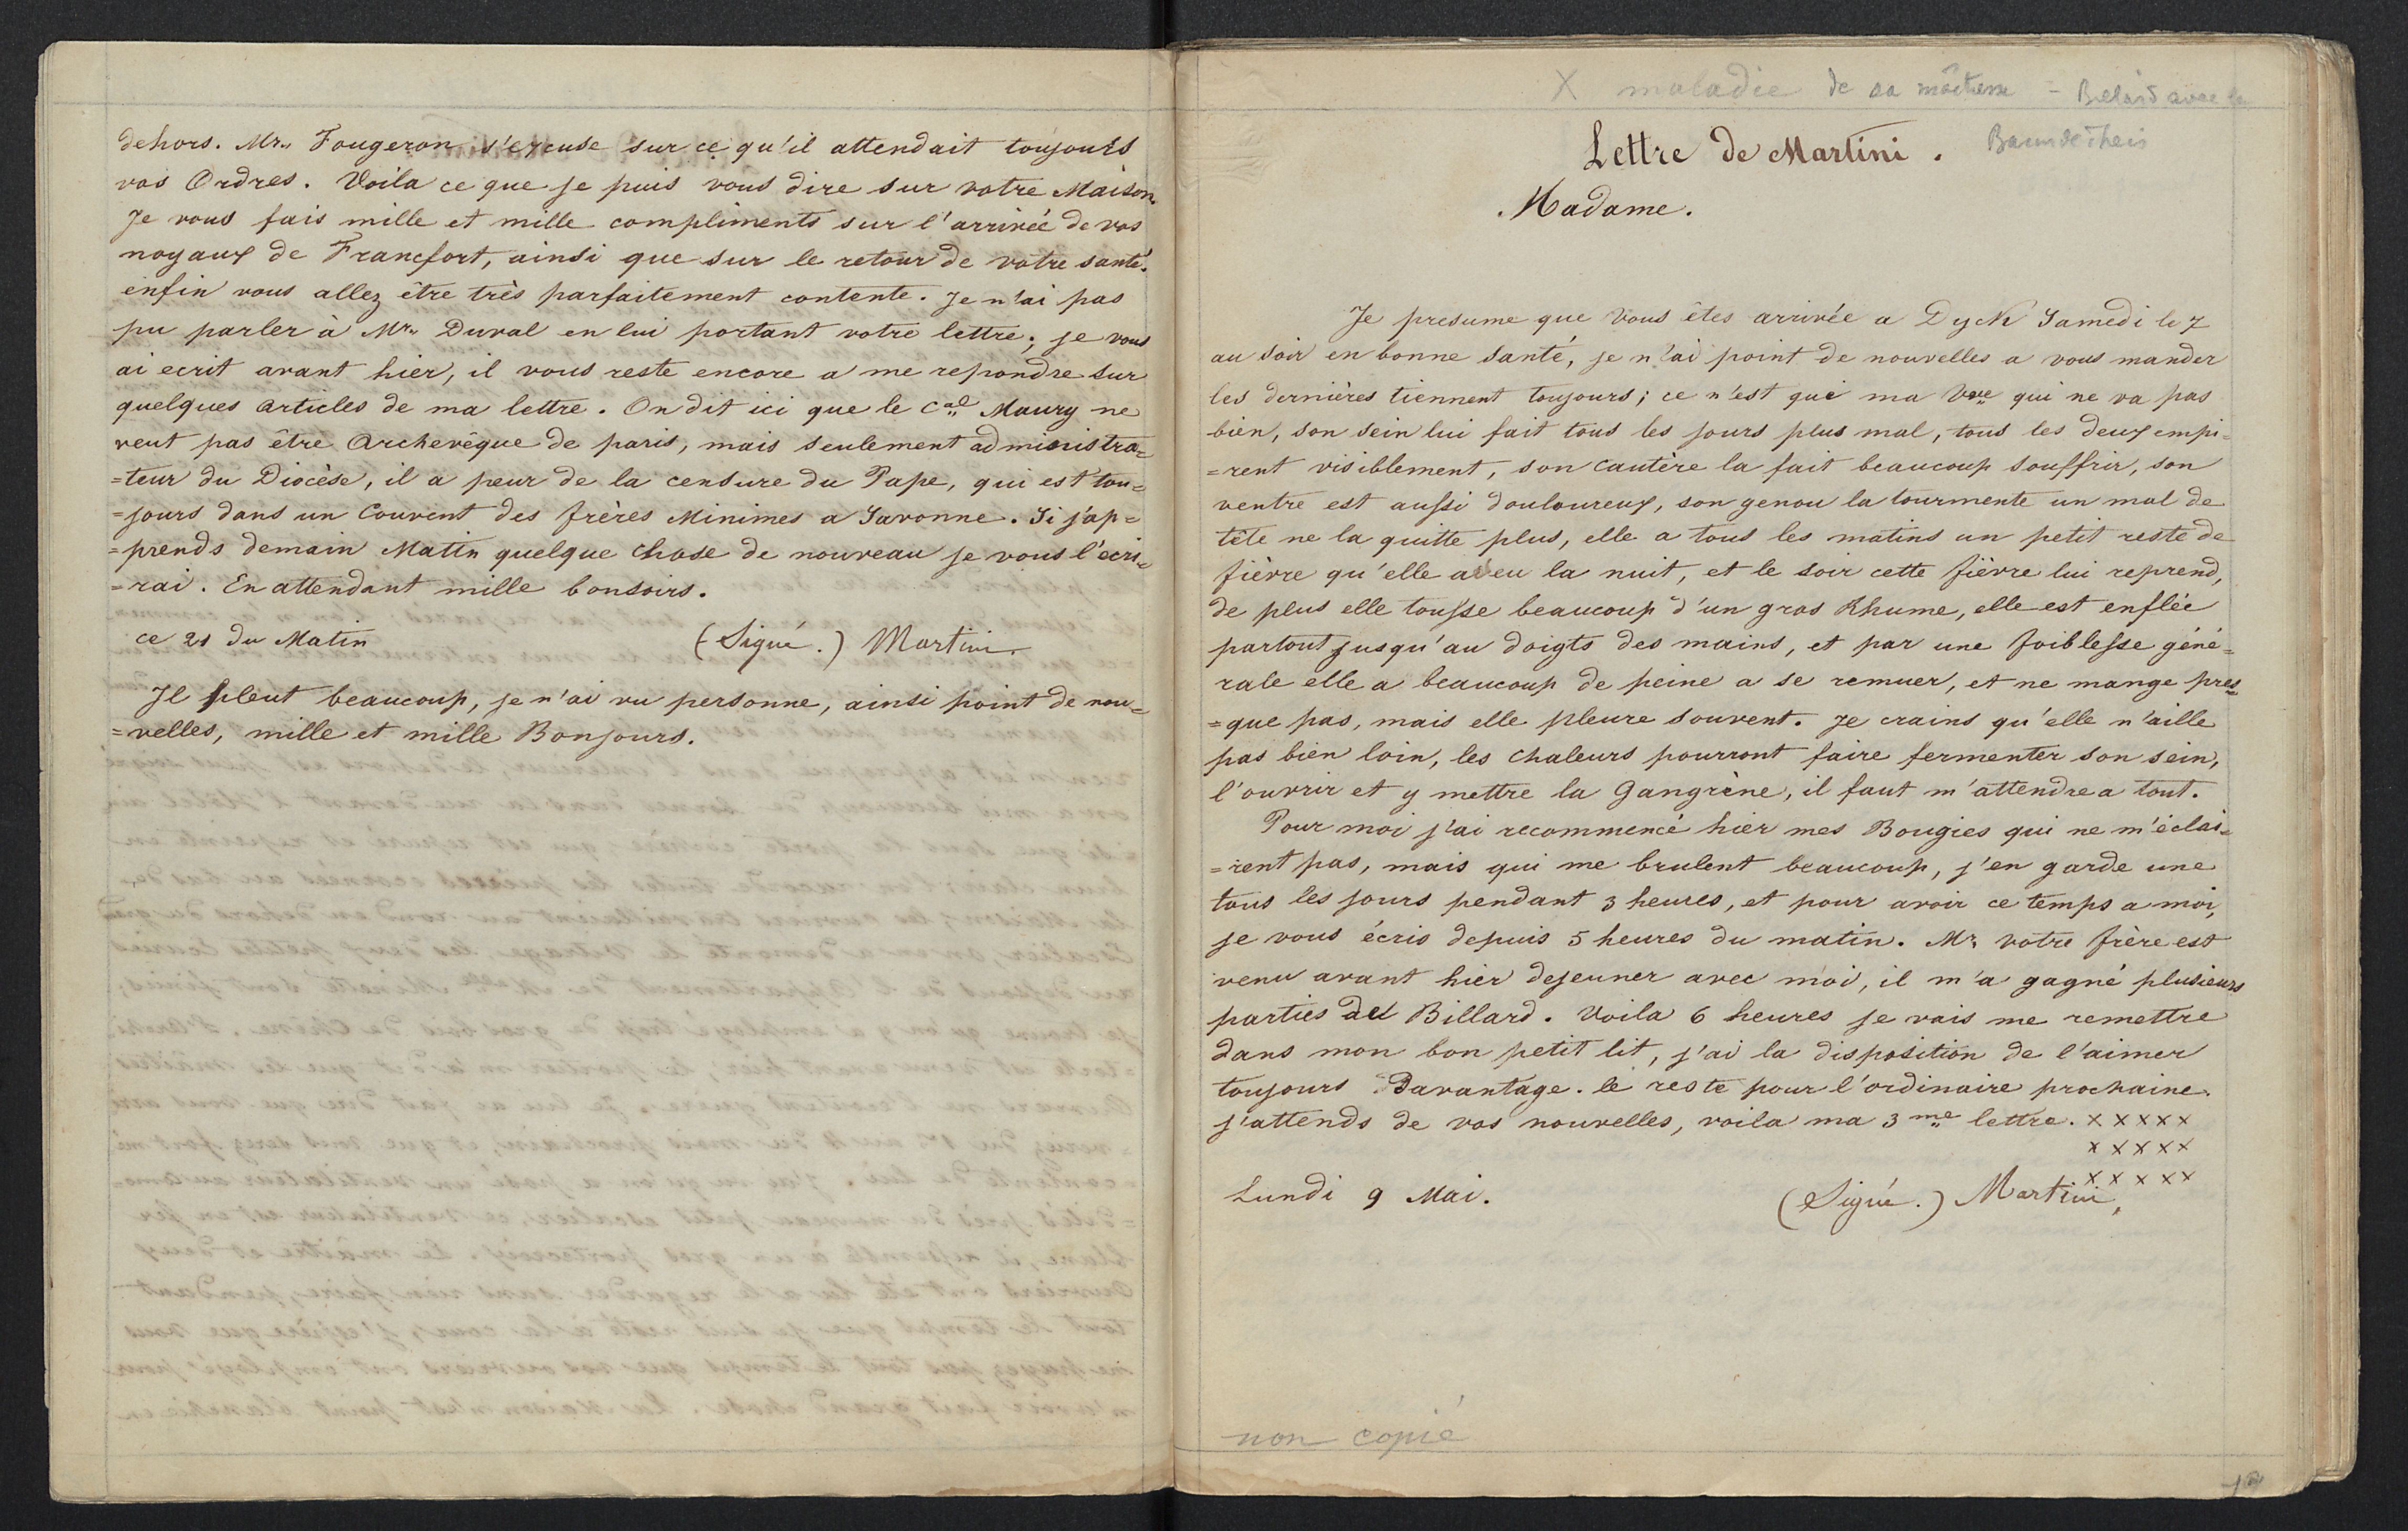 dehors. Mr. Fougeron s'excuse sur ce qu'il attendait toujours
vos Ordres. Voila ce que je puis vous dire sur votre Maison.
Je vous fais mille et mille compliments sur l'arrivée de vos
noyaux de Francfort, ainsi que sur le retour de votre santé.
enfin vous allez être très parfaitement contente. Je n'ai pas
pu parler à Mr. Duval en lui portant votre lettre; je vous
ai ecrit avant hier, il vous reste encore a me repondre sur
quelques articles de ma lettre. On dit ici que le Cal Maury ne
veut pas être Archevêque de paris, mais seulement administra=
=teur du Diocèse, il a peur de la censure du Pape, qui est tou=
=jours dans un Couvent des frères Minimes a Savonne. Si j'ap=
=prends demain Matin quelque chose de nouveau je vous l'ecri=
=rai. En attendant mille bonsoirs.
ce 21 du Matin (Signé.) Martini.
Il pleut beaucoup, je n'ai vu personne, ainsi point de nou=
=velles, mille et mille Bonjours.
X maladie de sa maîtresse = Billard avec le
Baron de Theis
Lettre de Martini.
Madame.
Je presume que vous êtes arrivée a Dyck Samedi le 7
au soir en bonne santé, je n'ai point de nouvelles a vous mander
les dernières tiennent toujours; ce n'est que ma Vve qui ne va pas
bien, son sein lui fait tous les jours plus mal, tous les deux empi=
=rent visiblement, son cautère la fait beaucoup souffrir, son
ventre est aussi douloureux, son genou la tourmente un mal de
tête ne la quitte plus, elle a tous les matins un petit reste de
fièvre qu'elle a eu la nuit, et le soir cette fièvre lui reprend,
de plus elle tousse beaucoup d'un gros Rhume, elle est enflée
partout jusqu'au doigts des mains, et par une foiblesse géné=
rale elle a beaucoup de peine a se remuer, et ne mange pres=
=que pas, mais elle pleure souvent. Je crains qu'elle n'aille
pas bien loin, les chaleurs pourront faire fermenter son sein,
l'ouvrir et y mettre la Gangrène, il faut m'attendre a tout.
Pour moi j'ai recommencé hier mes Bougies qui ne m'éclai=
=rent pas, mais qui me brulent beaucoup, j'en garde une
tous les jours pendant 3 heures, et pour avoir ce temps a moi,
je vous écris depuis 5 heures du matin. Mr. votre frère est
venu avant hier dejeuner avec moi, il m'a gagné plusieurs
parties de Billard. Voila 6 heures je vais me remettre
dans mon bon petit lit, j'ai la disposition de l'aimer
toujours Davantage. le reste pour l'ordinaire prochaine.
j'attends de vos nouvelles, voila ma 3me lettre. x x x x x
x x x x x
x x x x x
Lundi 9 Mai. (Signé.) Martini.
non copié